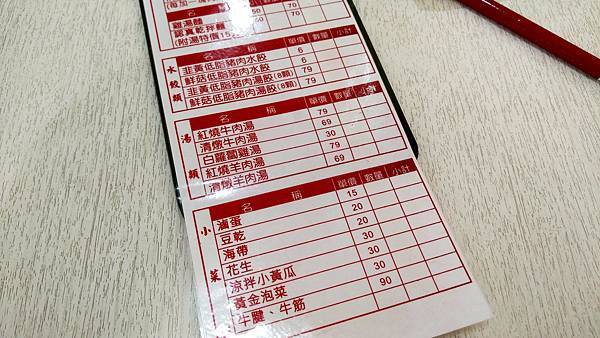 雞湯麵 50 70
認真乾拌麵 50 70
(附湯特價15
水餃類
名 稱 單價 數量 小計
韭黃低脂豬肉水餃 6
鮮菇低脂豬肉水餃 6
韭黃低脂豬肉湯餃(8顆) 79
鮮菇低脂豬肉湯餃(8顆) 79
湯類
名 稱 單價 數量 小計
紅燒牛肉湯 79
清燉牛肉湯 69
白蘿蔔雞湯 30
紅燒羊肉湯 79
清燉羊肉湯 69
小菜
名 稱 單價 數量 小計
滷蛋 15
豆乾 20
海帶 20
花生 30
涼拌小黃瓜 30
黃金泡菜 30
牛腱、牛筋 90